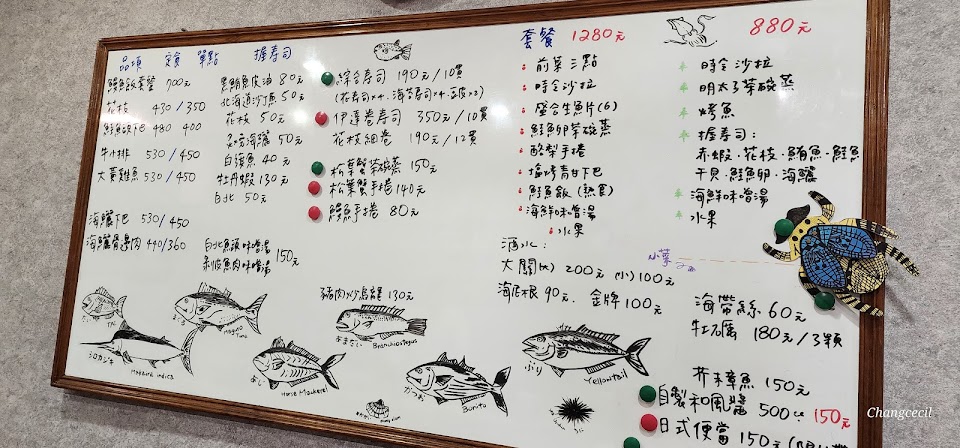 品項 定食 單點 握壽司
鰻魚飯套餐 700元
花枝 430/350
鮭魚頭下巴 480 400
牛小排 530/450
大異雞魚 530/450
海鱺下巴 530/450
海鱺骨邊肉 440/360
黑鮪魚皮油 80元
北海道沙丁魚 50元
花枝 50元
炙海鱺 50元
白旗魚 40元
牡丹蝦 130元
白北 50元
白北魚頭味噌湯
剝皮魚肉味噌湯
150元
豬肉炒烏龍 130元
綜合壽司 190元/10貫
(花壽司×4、海苔壽司×4、豆皮×2)
伊達卷壽司 350元/10貫
花枝細卷 190元/12貫
松葉蟹茶碗蒸 150元
松葉蟹手捲 140元
鰻魚手捲 80元
套餐 1280元
前菜三點
時令沙拉
盛合生魚片(6)
鮭魚卵茶碗蒸
酪梨手捲
鹽烤青甘下巴
鮭魚飯(熟食)
海鮮味噌湯
水果
酒水:
大關(大) 200元 (小)100元
海尼根 90元. 金牌 100元
880元
時令沙拉
明太子茶碗蒸
烤魚
握壽司:
赤蝦、花枝、鮪魚、鮭魚
干貝、鮭魚卵、海鱺
海鮮味噌湯
水果
小菜
海帶絲 60元
牡蠣 180元/3顆
芥末章魚 150元
自製和風醬 500cc 150元
日式便當 150元
シロカジキ
Makaira indica
まぐろ
Tuna
あじ
Horse Mackerel
あまだい
Branchiostegus
かつお
Bonito
ぶり
Yellowtail
Changcecil